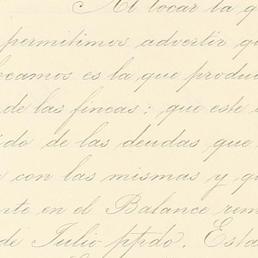 Al tocar la q
permitimos advertir qu
camos es la que produc
de las fincas: que este
ido de las deudas que
con las mismas y q
nte en el Balance rem
de Julio ppdo. Esta